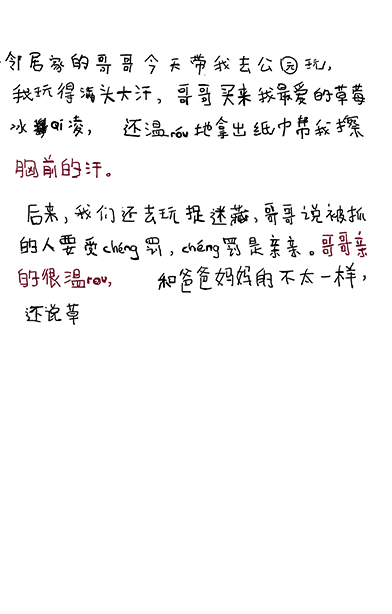 邻居家的哥哥今天带我去公园玩,
我玩得满头大汗,哥哥买来我最爱的草莓
冰qi凌,还温róu地拿出纸巾帮我擦
胸前的汗。
后来,我们还去玩捉迷藏,哥哥说被抓
的人要受chéng罚,chéng罚是亲亲。哥哥亲
的很温rou,和爸爸妈妈的不太一样,
还说草